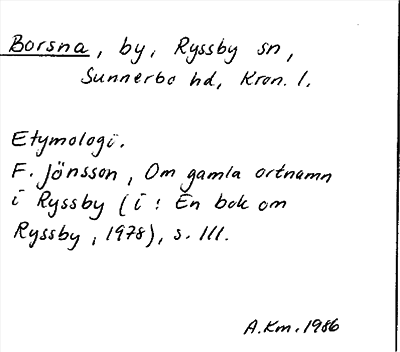 Borsna, by, Ryssby sn,
Sunnerbo hd, Kron. l.
Etymologi.
F. Jönsson, Om gamla ortnamn
i Ryssby (i: En bok om
Ryssby, 1978), s. 111.
A.Km. 1986